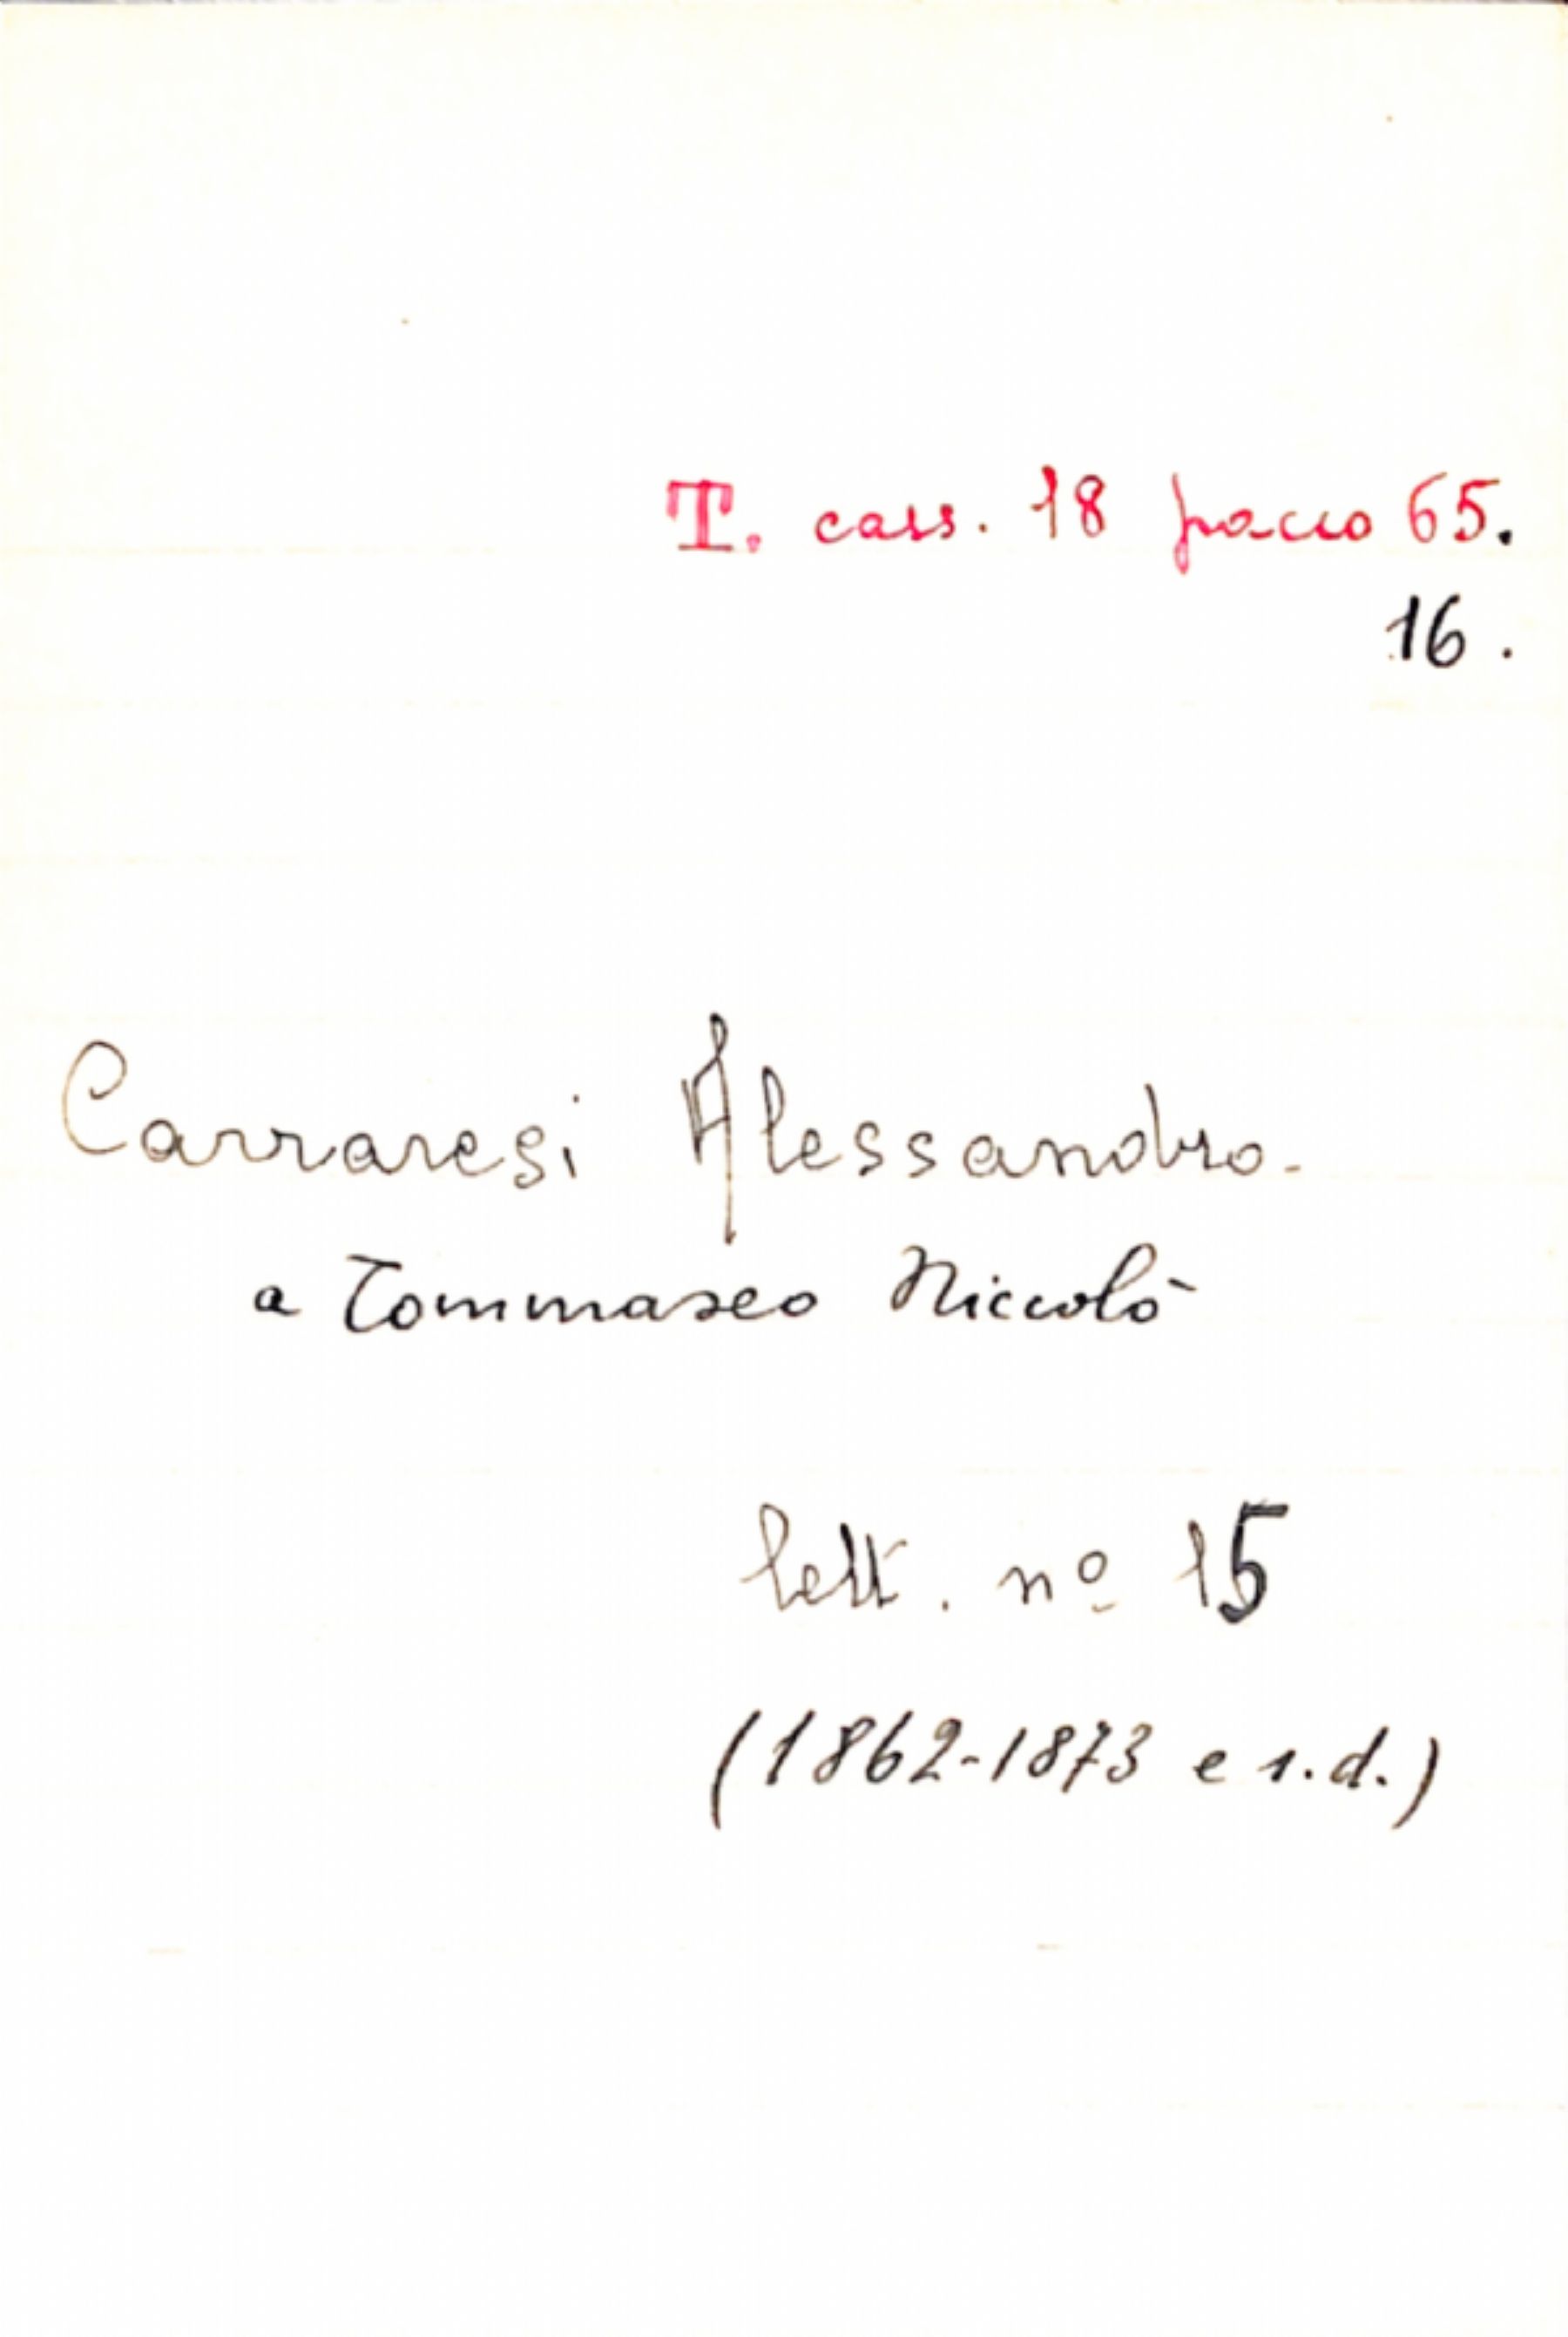 T. cass. 18 pacco 65.
16.
Carraresi Alessandro.
a Tommaseo Niccolò
lett. nº 15
(1862-1873 e s.d.)